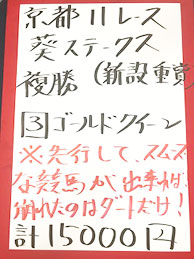 京都11レース
葵ステークス
複勝(新設重賞)
3 ゴールドクイーン
※先行して、スムーズ
な競馬が出来れば、
崩れたのはダートだけ!
計15000円